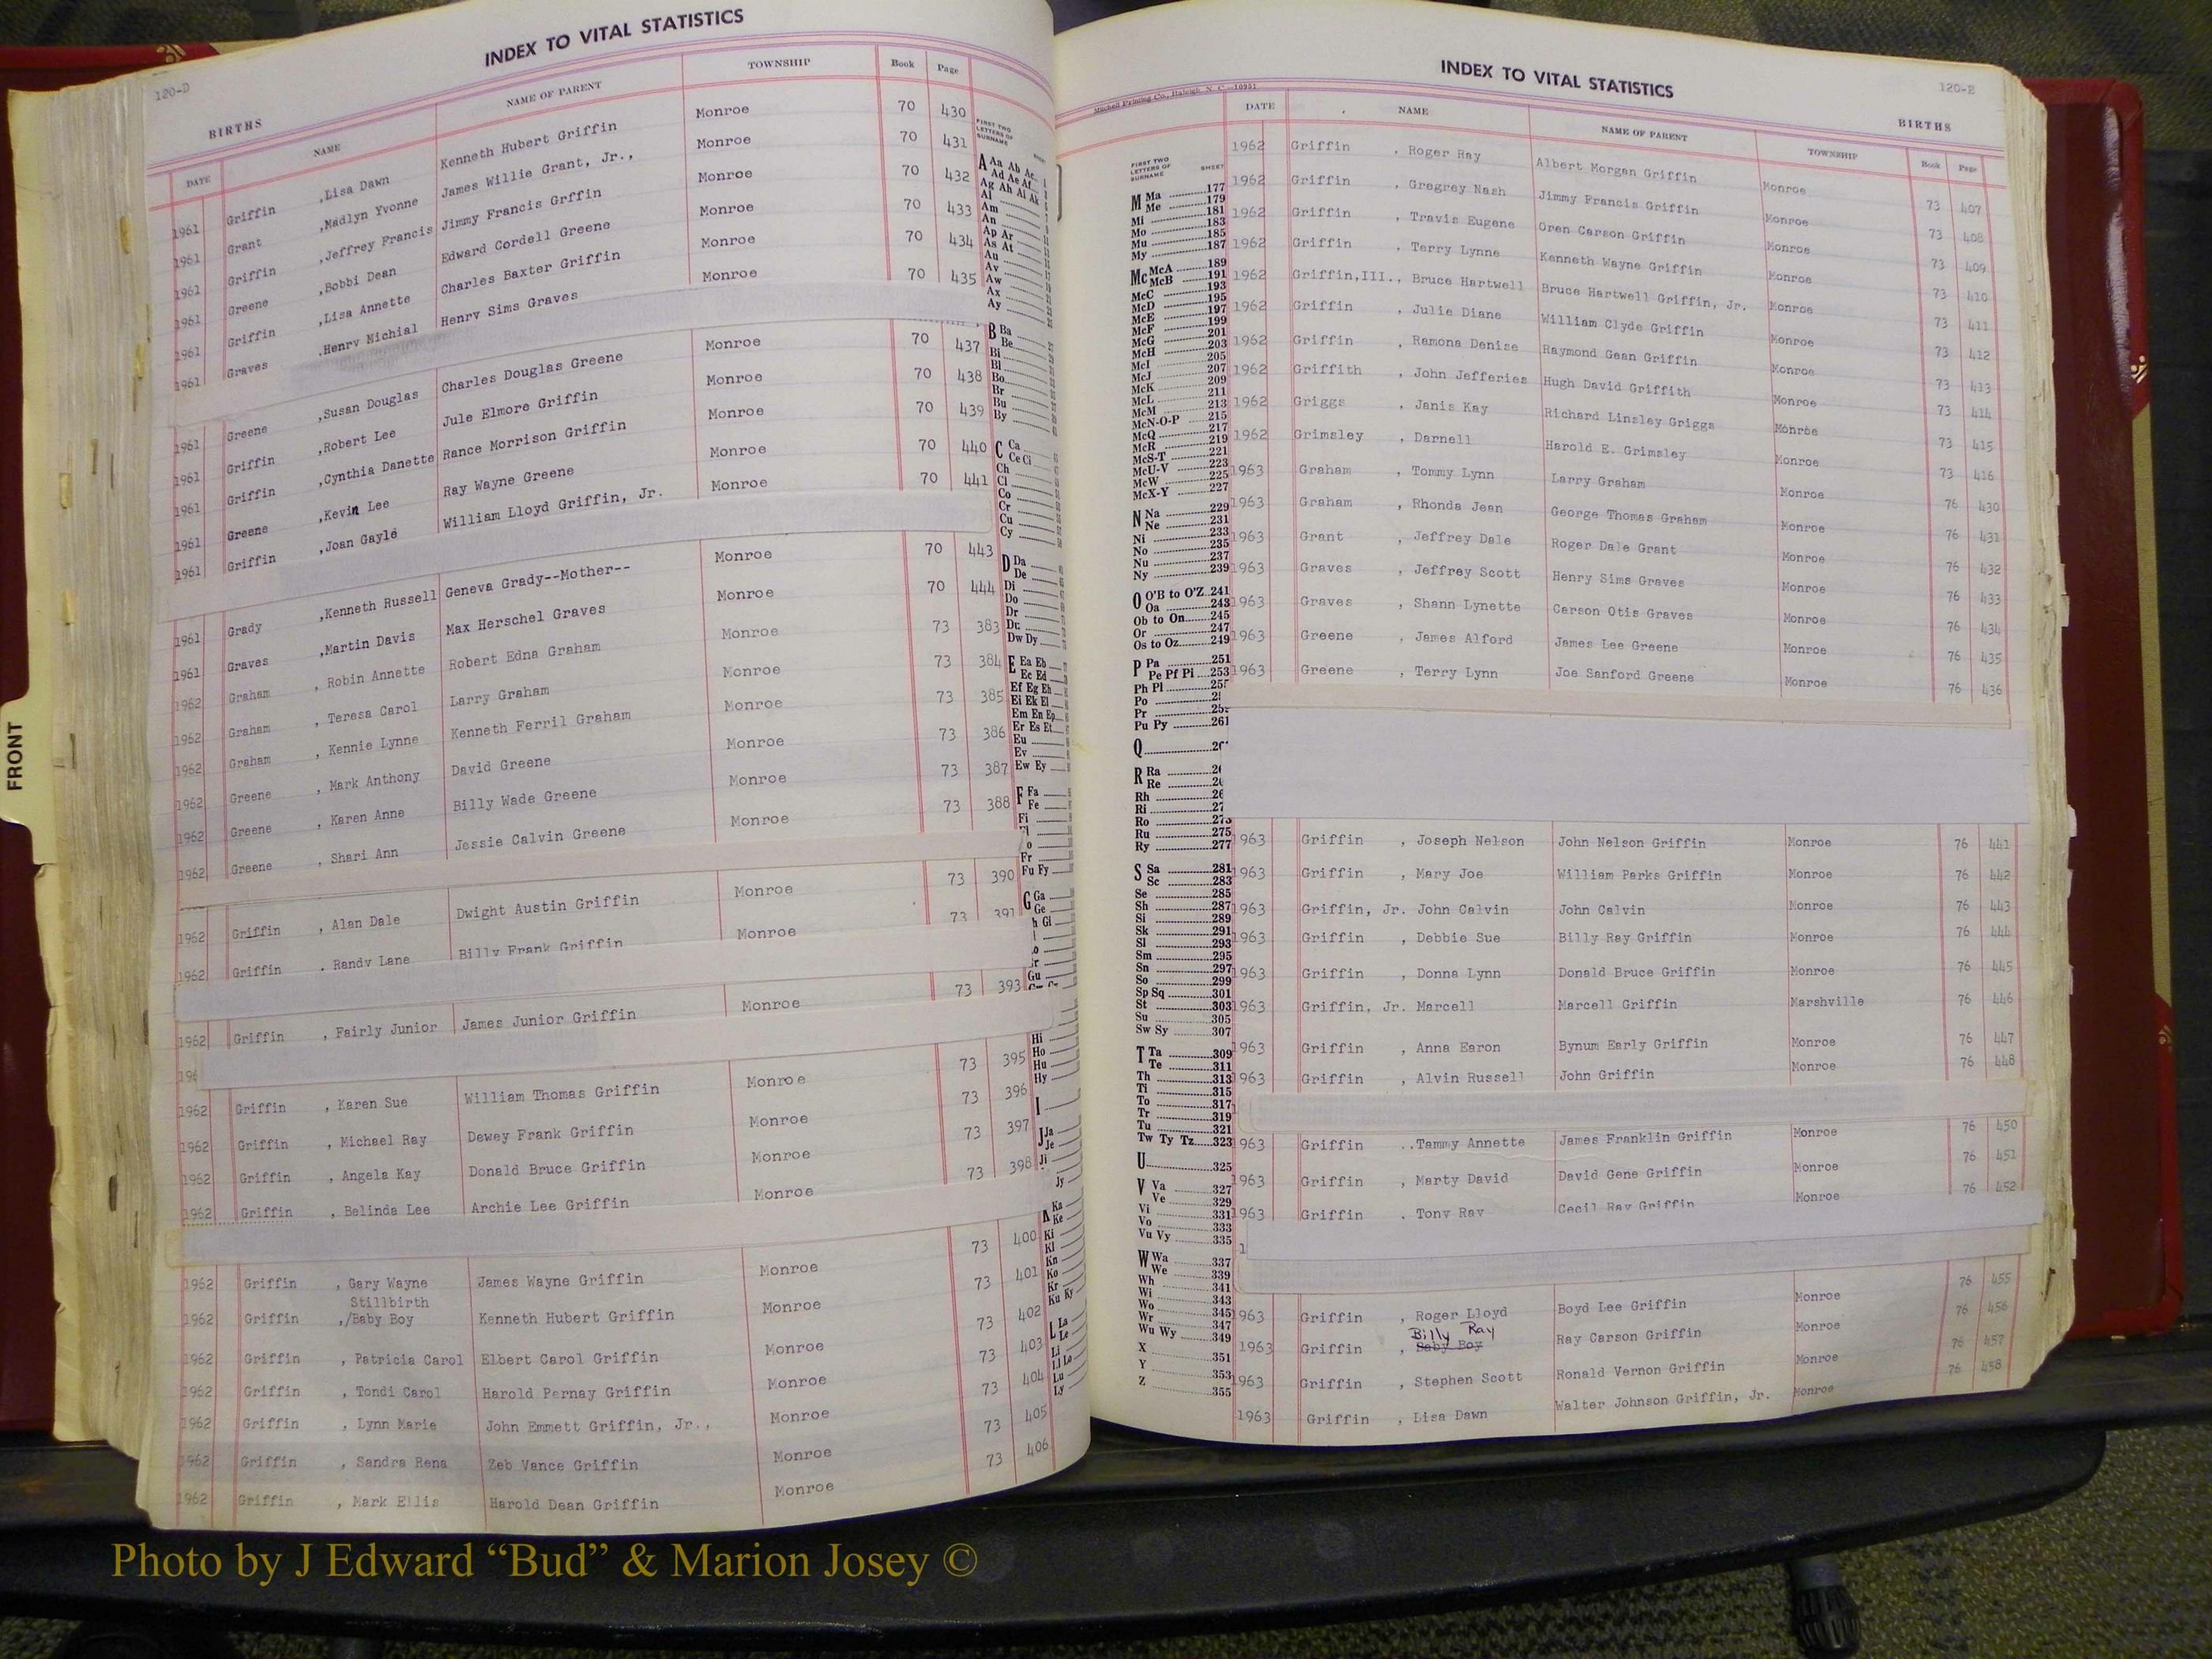 FRONT
120-D
INDEX TO VITAL STATISTICS
BIRTHS
DATE NAME NAME OF PARENT TOWNSHIP Book Page
1961 Griffin ,Lisa Dawn Kenneth Hubert Griffin Monroe 70 430
1961 Grant ,Madlyn Yvonne James Willie Grant, Jr., Monroe 70 431
1961 Griffin ,Jeffrey Francis Jimmy Francis Grffin Monroe 70 432
1961 Greene ,Bobbi Dean Edward Cordell Greene Monroe 70 433
1961 Griffin ,Lisa Annette Charles Baxter Griffin Monroe 70 434
1961 Graves ,Henry Michial Henry Sims Graves Monroe 70 435
1961 Greene ,Susan Douglas Charles Douglas Greene Monroe 70 437
1961 Griffin ,Robert Lee Jule Elmore Griffin Monroe 70 438
1961 Griffin ,Cynthia Danette Rance Morrison Griffin Monroe 70 439
1961 Greene ,Kevin Lee Ray Wayne Greene Monroe 70 440
1961 Griffin ,Joan Gayle William Lloyd Griffin, Jr. Monroe 70 441
1961 Grady ,Kenneth Russell Geneva Grady--Mother-- Monroe 70 443
1961 Graves ,Martin Davis Max Herschel Graves Monroe 70 444
1962 Graham , Robin Annette Robert Edna Graham Monroe 73 383
1962 Graham , Teresa Carol Larry Graham Monroe 73 384
1962 Graham , Kennie Lynne Kenneth Ferril Graham Monroe 73 385
1962 Greene , Mark Anthony David Greene Monroe 73 386
1962 Greene , Karen Anne Billy Wade Greene Monroe 73 387
1962 Greene , Shari Ann Jessie Calvin Greene Monroe 73 388
1962 Griffin , Alan Dale Dwight Austin Griffin Monroe 73 390
1962 Griffin , Randy Lane Billy Frank Griffin Monroe 73 391
1962 Griffin , Fairly Junior James Junior Griffin Monroe 73 393
196
1962 Griffin , Karen Sue William Thomas Griffin Monroe 73 395
1962 Griffin , Michael Ray Dewey Frank Griffin Monroe 73 396
1962 Griffin , Angela Kay Donald Bruce Griffin Monroe 73 397
1962 Griffin , Belinda Lee Archie Lee Griffin Monroe 73 398
1962 Griffin , Gary Wayne James Wayne Griffin Monroe 73 400
Stillbirth
1962 Griffin ,/Baby Boy Kenneth Hubert Griffin Monroe 73 401
1962 Griffin , Patricia Carol Elbert Carol Griffin Monroe 73 402
1962 Griffin , Tondi Carol Harold Pernay Griffin Monroe 73 403
1962 Griffin , Lynn Marie John Emmett Griffin, Jr., Monroe 73 404
1962 Griffin , Sandra Rena Zeb Vance Griffin Monroe 73 405
1962 Griffin , Mark Ellis Harold Dean Griffin Monroe 73 406
FIRST TWO
LETTERS OF
SURNAME
A Aa Ab Ac
Ad Ae Af
Ag Ah Ai Ak
Al
Am
An
Ap Ar
As At
Au
Av
Aw
Ax
Ay
B Ba
Be
Bi
Bl
Bo
Br
Bu
By
C Ca
Ce Ci
Ch
Cl
Co
Cr
Cu
Cy
D Da
De
Di
Do
Dr
Du
Dw Dy
E Ea Eb
Ec Ed
Ef Eg Eh
Ei Ek El
Em En Ep
Er Es Et
Eu
Ev
Ew Ey
F Fa
Fe
Fi
Fr
Fu Fy
G Ga
Ge
Gu
Hi
Ho
Hu
Hy
I
J Ja
Je
Ji
Jy
Ka
Ke
Ki
Kl
Kn
Ko
Kr
Ku Ky
L La
Le
Li
Ll Lo
Lu
Ly
120-E
INDEX TO VITAL STATISTICS
Mitchell Printing Co., Raleigh, N. C.-10951
BIRTHS
DATE NAME NAME OF PARENT TOWNSHIP Book Page
FIRST TWO
LETTERS OF
SURNAME SHEET
M Ma 177
Me 179
Mi 181
Mo 183
Mu 185
My 187
Mc McA 189
McB 191
McC 193
McD 195
McE 197
McF 199
McG 201
McH 203
McI 205
McJ 207
McK 209
McL 211
McM 213
McN-O-P 215
McQ 217
McR 219
McS-T 221
McU-V 223
McW 225
McX-Y 227
N Na 229
Ne 231
Ni 233
No 235
Nu 237
Ny 239
O O'B to O'Z 241
Oa 243
Ob to On 245
Or 247
Os to Oz 249
P Pa 251
Pe Pf Pi 253
Ph Pl 255
Po
Pr
Pu Py 261
Q
R Ra
Re
Rh
Ri
Ro 273
Ru 275
Ry 277
S Sa 281
Sc 283
Se 285
Sh 287
Si 289
Sk 291
Sl 293
Sm 295
Sn 297
So 299
Sp Sq 301
St 303
Su 305
Sw Sy 307
T Ta 309
Te 311
Th 313
Ti 315
To 317
Tr 319
Tu 321
Tw Ty Tz 323
U 325
V Va 327
Ve 329
Vi 331
Vo 333
Vu Vy 335
W Wa 337
We 339
Wh 341
Wi 343
Wo 345
Wr 347
Wu Wy 349
X 351
Y 353
Z 355
1962 Griffin , Roger Ray Albert Morgan Griffin Monroe 73 407
1962 Griffin , Gregrey Nash Jimmy Francis Griffin Monroe 73 408
1962 Griffin , Travis Eugene Oren Carson Griffin Monroe 73 409
1962 Griffin , Terry Lynne Kenneth Wayne Griffin Monroe 73 410
1962 Griffin,III., Bruce Hartwell Bruce Hartwell Griffin, Jr. Monroe 73 411
1962 Griffin , Julie Diane William Clyde Griffin Monroe 73 412
1962 Griffin , Ramona Denise Raymond Gean Griffin Monroe 73 413
1962 Griffith , John Jefferies Hugh David Griffith Monroe 73 414
1962 Griggs , Janis Kay Richard Linsley Griggs Monroe 73 415
1962 Grimsley , Darnell Harold E. Grimsley Monroe 73 416
1963 Graham , Tommy Lynn Larry Graham Monroe 76 430
1963 Graham , Rhonda Jean George Thomas Graham Monroe 76 431
1963 Grant , Jeffrey Dale Roger Dale Grant Monroe 76 432
1963 Graves , Jeffrey Scott Henry Sims Graves Monroe 76 433
1963 Graves , Shann Lynette Carson Otis Graves Monroe 76 434
1963 Greene , James Alford James Lee Greene Monroe 76 435
1963 Greene , Terry Lynn Joe Sanford Greene Monroe 76 436
1963 Griffin , Joseph Nelson John Nelson Griffin Monroe 76 441
1963 Griffin , Mary Joe William Parks Griffin Monroe 76 442
1963 Griffin, Jr. John Calvin John Calvin Monroe 76 443
1963 Griffin , Debbie Sue Billy Ray Griffin Monroe 76 444
1963 Griffin , Donna Lynn Donald Bruce Griffin Monroe 76 445
1963 Griffin, Jr. Marcell Marcell Griffin Marshville 76 446
1963 Griffin , Anna Earon Bynum Early Griffin Monroe 76 447
1963 Griffin , Alvin Russell John Griffin Monroe 76 448
1963 Griffin ..Tammy Annette James Franklin Griffin Monroe 76 450
1963 Griffin , Marty David David Gene Griffin Monroe 76 451
1963 Griffin . Tony Ray Cecil Ray Griffin Monroe 76 452
1963 Griffin , Roger Lloyd Boyd Lee Griffin Monroe 76 455
Billy Ray
1963 Griffin , Baby Boy Ray Carson Griffin Monroe 76 456
1963 Griffin , Stephen Scott Ronald Vernon Griffin Monroe 76 457
1963 Griffin , Lisa Dawn Walter Johnson Griffin, Jr. Monroe 76 458
Photo by J Edward “Bud” & Marion Josey ©